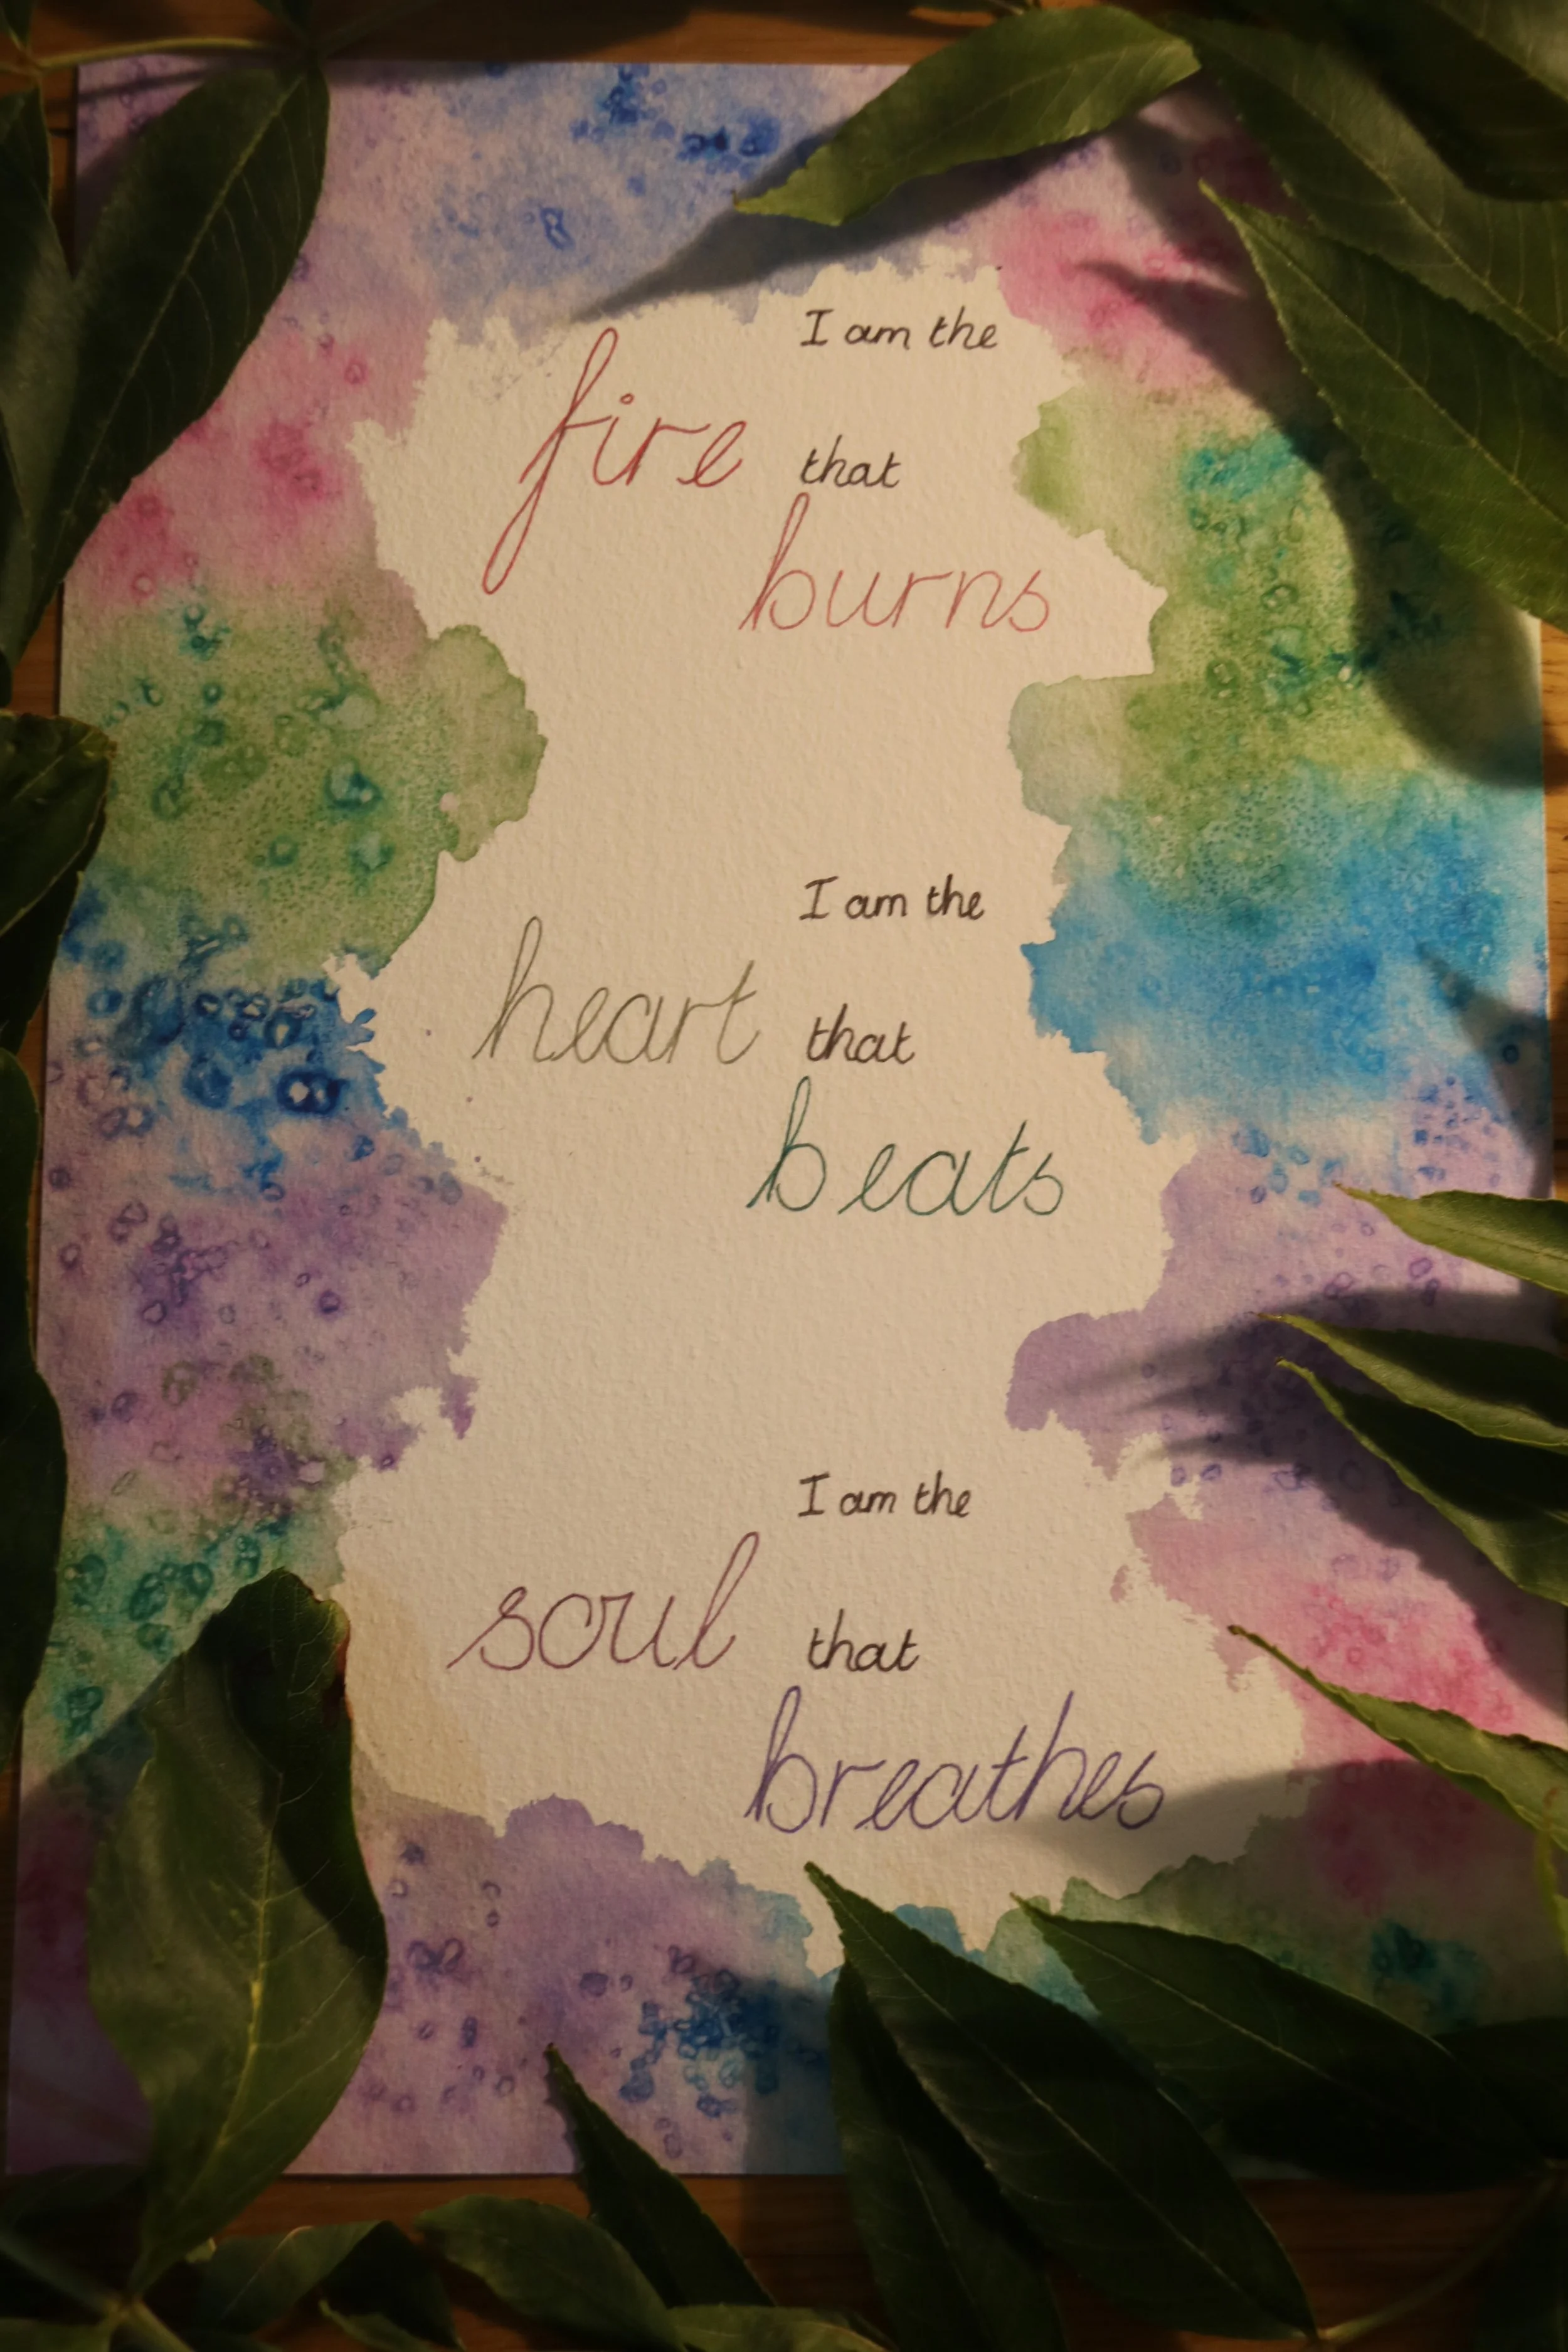 I am the
fire that
burns
I am the
heart that
beats
I am the
soul that
breathes